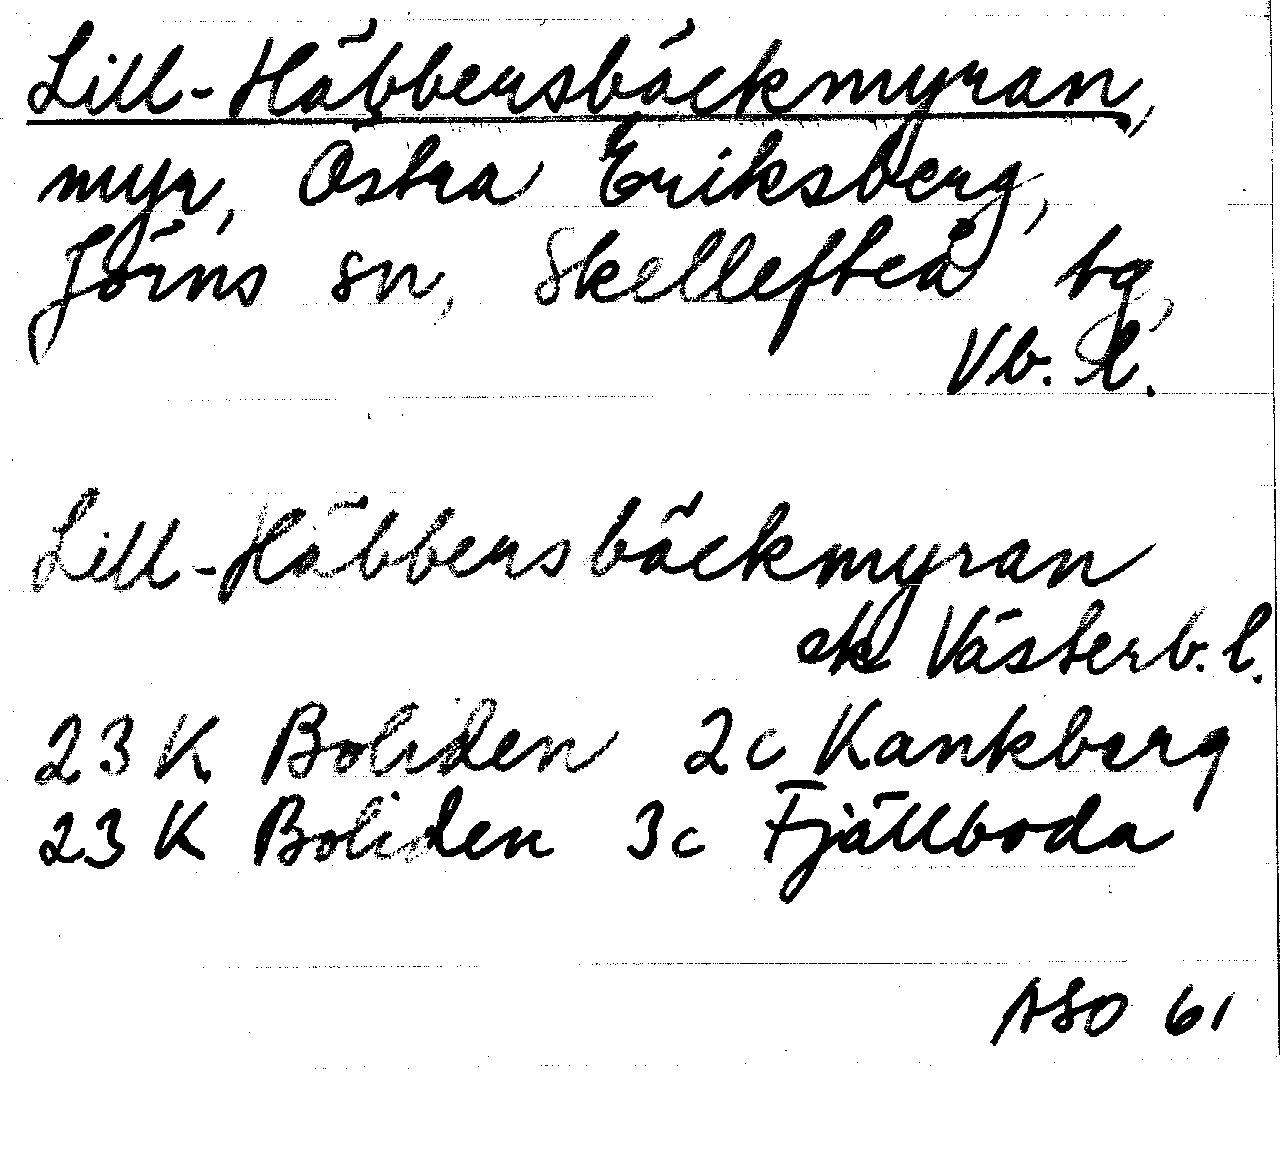 Lill-Häbbersbäckmyran,
myr, Östra Eriksberg,
Jörns sn, Skellefteå tg,
Vb. l.
Lill-Häbbersbäckmyran
ek Västerb. l.
23 K Boliden 2c Kankberg
23 K Boliden 3c Fjällboda
ASO 61